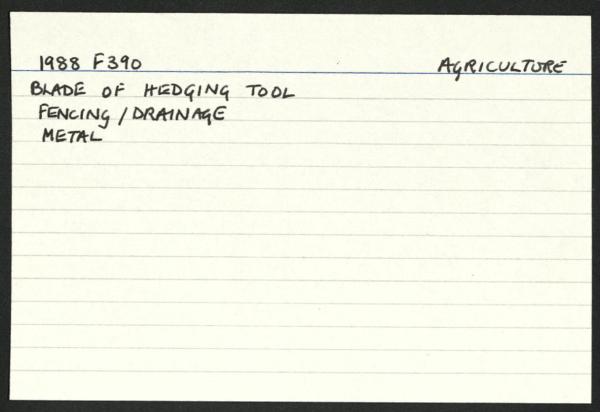 1988 F390 AGRICULTURE
BLADE OF HEDGING TOOL
FENCING / DRAINAGE
METAL